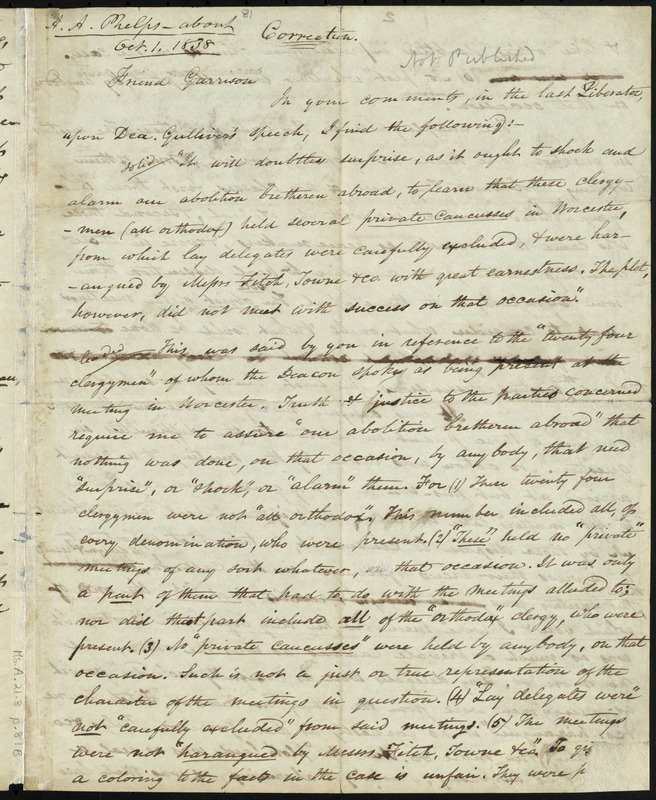 A. A. Phelps – about
Oct. 1. 1838
81
Correction.
Not Published
Friend Garrison
In your comments, in the last Liberator,
upon Dea. Gulliver's speech, I find the following:–
solid "It will doubtless surprise, as it ought to shock and
alarm our abolition bretheren abroad, to learn that these clergy-
-men (all orthodox) held several private caucusses in Worcester,
from which lay delegates were carefully excluded, & were har-
-angued by Messrs Fitch, Towne &co. with great earnestness. The plot,
however, did not meet with success on that occasion".
This was said by you in reference to the "twenty four
clergymen" of whom the Deacon spoke as being present at the
meeting in Worcester. Truth & justice to the parties concerned
require me to assure "our abolition bretheren abroad" that
nothing was done, on that occasion, by any body, that need
"surprise", or "shock", or "alarm" them. For (1) These twenty four
clergymen were not "all orthodox". This number included all, of
every denomination, who were present. (2) "These" held no "private"
meetings of any sort whatever, on that occasion. It was only
a part of them that had to do with the meetings alluded to;
nor did that part include all of the "orthodox" clergy, who were
present. (3) No "private caucusses" were held by anybody, on that
occasion. Such is not a just or true representation of the
character of the meetings in question. (4) "Lay delegates were"
not "carefully excluded" from said meetings. (5) The meetings
were not "harangued by Messrs Fitch, Towne &co." To give
a coloring to the facts in the case is unfair. They were
Ms.A.21.8 p.81B